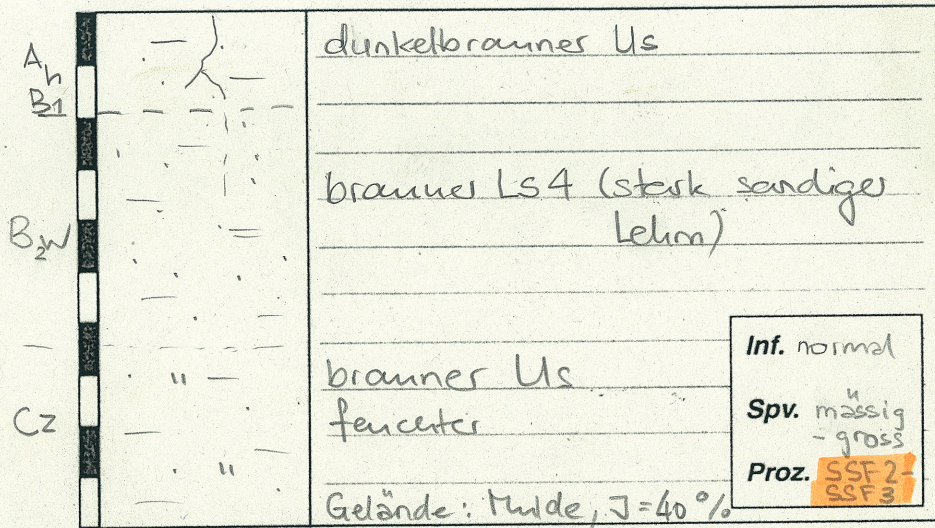 Ah
B1
dunkelbrauner Us
B2W
brauner Ls4 (stark sandiger
Lehm)
Cz
brauner Us
feuchter
Gelände: Mulde, J=40%
Inf. normal
Spv. mässig
- gross
Proz. SSF2-
SSF3